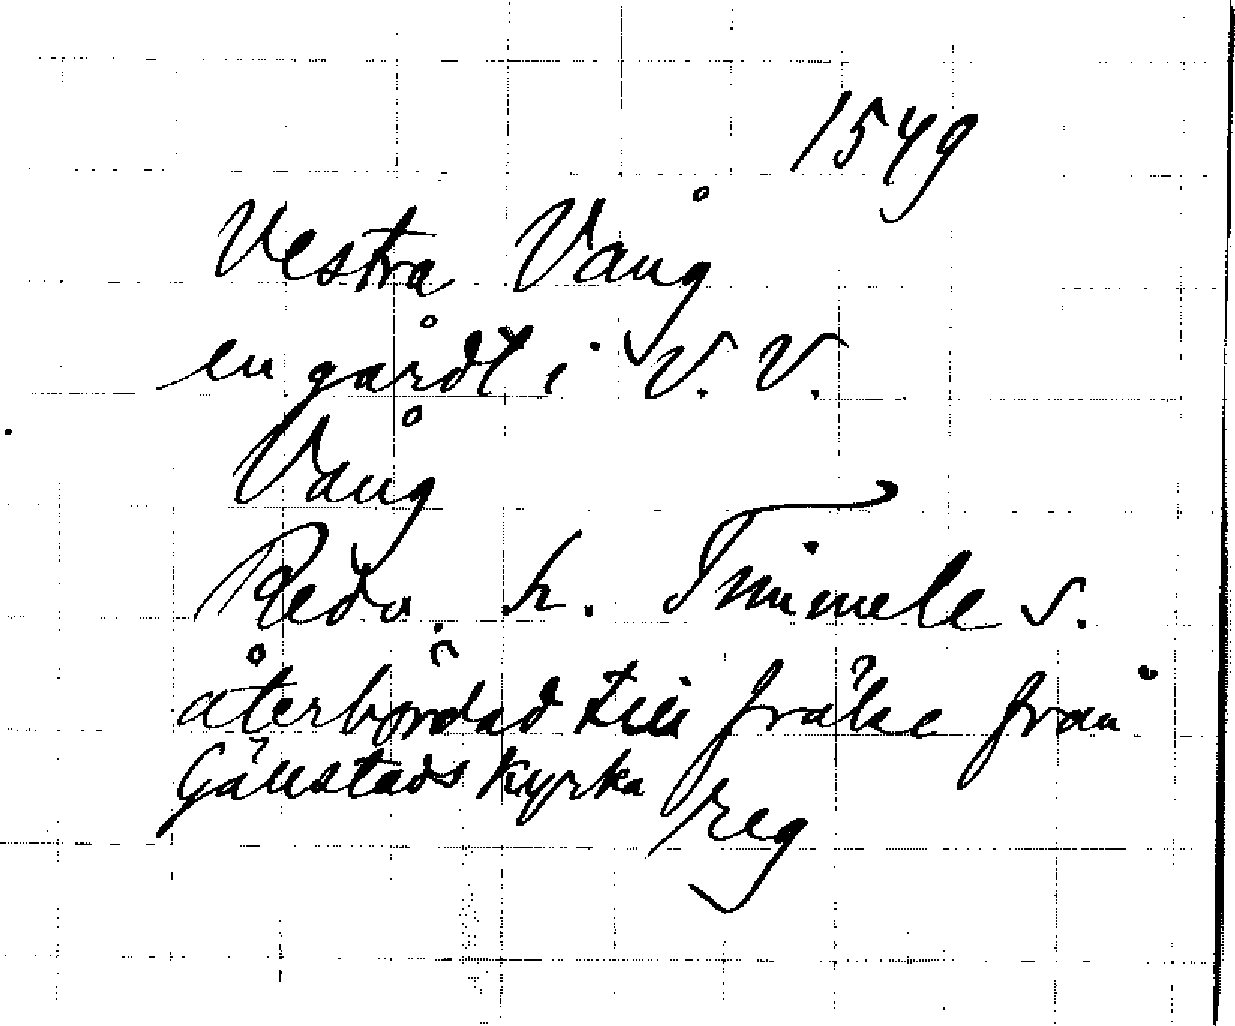 1549
Vestra Vång
en gårdt i V. V.
Vång
Redv. h. Timmele s.
återbördad till frälse från
Gällstads kyrka
reg